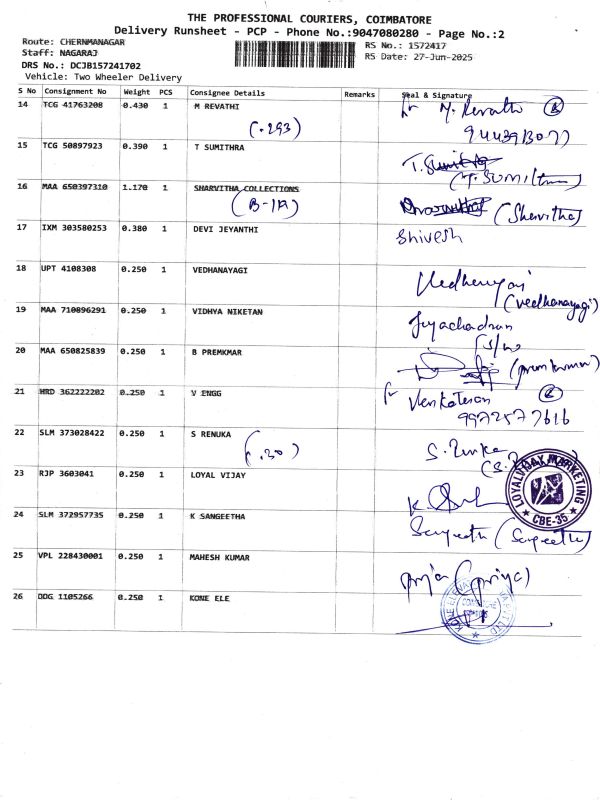 THE PROFESSIONAL COURIERS, COIMBATORE
Delivery Runsheet - PCP - Phone No.:9047080280 - Page No.:2
Route: CHERNMANAGAR
RS No.: 1572417
Staff: NAGARAJ
RS Date: 27-Jun-2025
DRS No.: DCJB157241702
Vehicle: Two Wheeler Delivery
S No Consignment No Weight PCS Consignee Details Remarks Seal & Signature
14 TCG 41763208 0.430 1 M REVATHI M. Revathi
(.293) 9443913077
15 TCG 50897923 0.390 1 T SUMITHRA
16 MAA 650397310 1.170 1 SHARVITHA COLLECTIONS
(B-1A) (Sharvitha)
17 IXM 303580253 0.380 1 DEVI JEYANTHI Shivesh
18 UPT 4108308 0.250 1 VEDHANAYAGI
(vedhanayagi)
19 MAA 710896291 0.250 1 VIDHYA NIKETAN
S/w
20 MAA 650825839 0.250 1 B PREMKMAR (premkumar)
21 HRD 362222202 0.250 1 V ENGG Venkatesan
9972577616
22 SLM 373028422 0.250 1 S RENUKA
(.30)
23 RJP 3603041 0.250 1 LOYAL VIJAY
LOYAL VIJAY MARKETING
CBE-35
24 SLM 372957735 0.250 1 K SANGEETHA Sangeetha (Sangeetha)
25 VPL 228430001 0.250 1 MAHESH KUMAR priya (priya)
26 DDG 1105266 0.250 1 KONE ELE